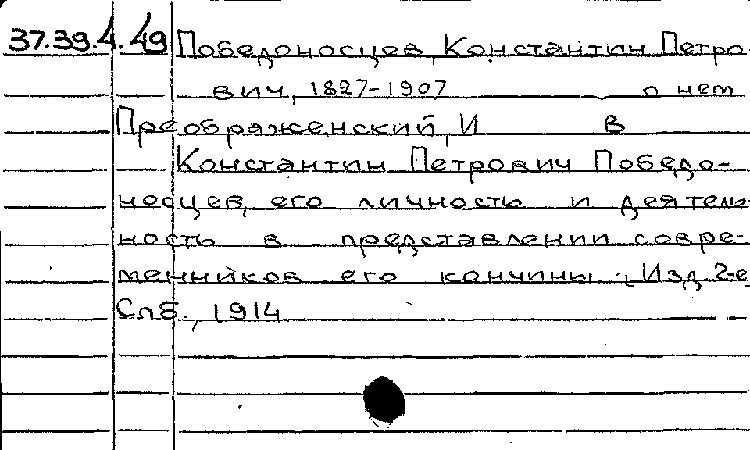 37.39.4.49 Победоносцев, Константин Петро-
вич, 1827-1907 о нем
Преображенский, И В
Константин Петрович Победо-
носцев, его личность и деятель-
ность в представлении совре-
менников его кончины. Изд. 2-е
Спб., 1914